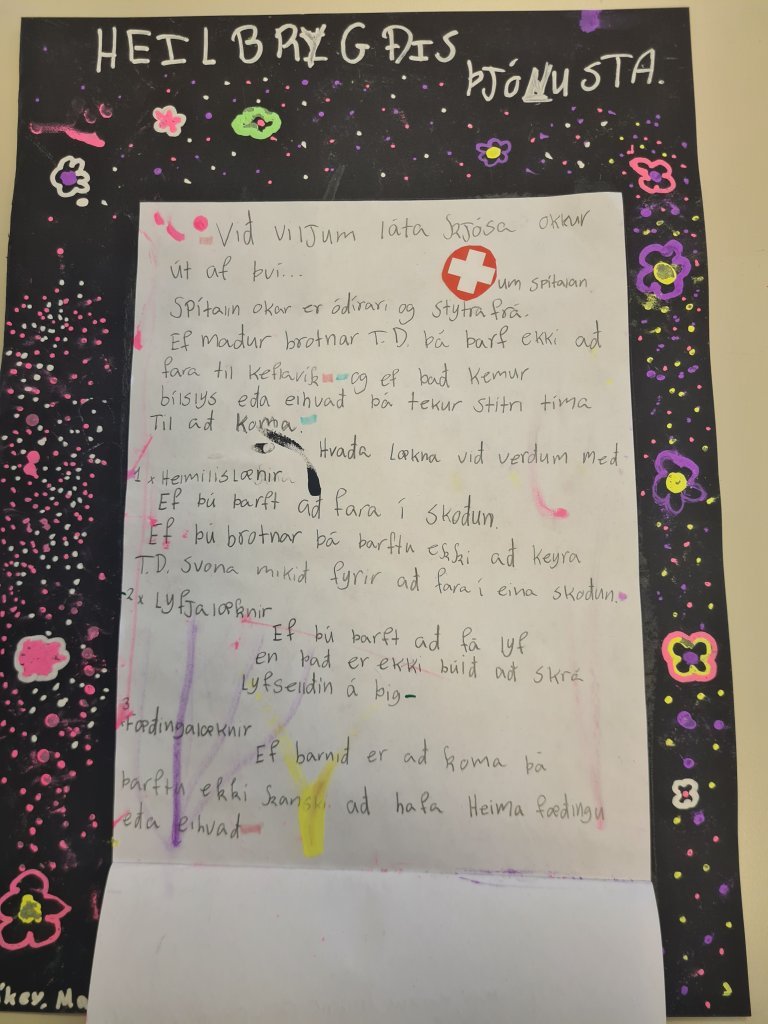 HEILBRYGÐIS
ÞJÓNUSTA.
Við viljum láta kjósa okkur
út af því...
um spítalan
Spítalin okar er ódírari og styttra frá.
Ef maður brotnar T.D. þá þarf ekki að
fara til Keflavík og ef það kemur
bílslys eða eihvað þá tekur stitri tíma
Til að koma.
Hvaða lækna við verdum með
1 x Heimilislænir
Ef þú þarft að fara í skoðun.
Ef þú brotnar þá þarftu ekki að keyra
T.D. svona mikið fyrir að fara í eina skoðun.
2 x Lyfjalæknir
Ef þú þarft að fá lyf
en það er ekki búið að skrá
Lyfseiðin á þig-
3
Fæðingalæknir
Ef barnið er að koma þá
þarftu ekki kanski að hafa Heima fæðingu
eða eihvað